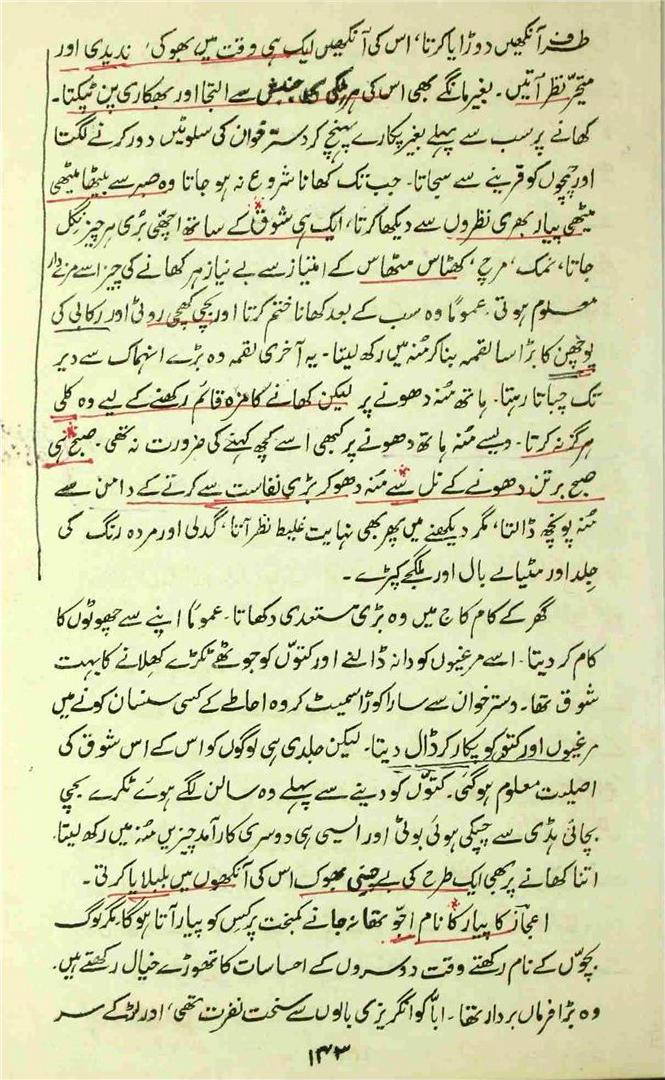 طرف آنکھیں دوڑایا کرتا، اس کی آنکھیں ایک ہی وقت میں بھوکی، ندیدی اور
متحیّر نظر آتیں۔ بغیر مانگے بھی اس کی ہر ہلکی سی جنبش سے التجا اور بھکاری پن ٹپکتا۔
کھانے پر سب سے پہلے بغیر پکارے پہنچ کر دسترخوان کی سلوٹیں دور کرنے لگتا
اور چمچوں کو قرینے سے سجاتا۔ جب تک کھانا شروع نہ ہو جاتا وہ صبر سے بیٹھا میٹھی
میٹھی پیار بھری نظروں سے دیکھا کرتا، ایک ہی شوق کے ساتھ اچھی بُری ہر چیز نگل
جاتا، نمک، مرچ، کھٹاس مٹھاس کے امتیاز سے بے نیاز ہر کھانے کی چیز اسے مزے دار
معلوم ہوتی۔ عموماً وہ سب کے بعد کھانا ختم کرتا اور بچی کھچی روٹی اور رکابی کی
پوچھن کا بڑا سا لقمہ بنا کر مُنہ میں رکھ لیتا۔ یہ آخری لقمہ وہ بڑے انہماک سے دیر
تک چباتا رہتا۔ ہاتھ مُنہ دھونے پر لیکن کھانے کا مزہ قائم رکھنے کے لیے وہ کلی
ہرگز نہ کرتا۔ ویسے مُنہ ہاتھ دھونے پر کبھی اسے کچھ کہنے کی ضرورت نہ تھی۔ صبح ہی
صبح برتن دھونے کے نل سے مُنہ دھو کر بڑی نفاست سے کرتے کے دامن سے
مُنہ پونچھ ڈالتا، مگر دیکھنے میں پھر بھی نہایت غلیظ نظر آتا، گدلی اور مردہ رنگ کی
جلد اور مٹیالے بال اور ملگجے کپڑے۔
گھر کے کام کاج میں وہ بڑی مستعدی دکھاتا۔ عموماً اپنے سے چھوٹوں کا
کام کر دیتا۔ اسے مرغیوں کو دانہ ڈالنے اور کتوں کو جوٹھے ٹکڑے کھلانے کا بہت
شوق تھا۔ دسترخوان سے سارا کوڑا سمیٹ کر وہ احاطے کے کسی سنسان کونے میں
مرغیوں اور کتو کو پکار کر ڈال دیتا۔ لیکن جلدی ہی لوگوں کو اس کے اس شوق کی
اصلیت معلوم ہو گئی۔ کتوں کو دینے سے پہلے وہ سالن لگے ہوئے ٹکرے بچی
بچائی ہڈی سے چپکی ہوئی بوٹی اور ایسی ہی دوسری کارآمد چیزیں مُنہ میں رکھ لیتا۔
اتنا کھانے پر بھی ایک طرح کی بے چینی بھوک اس کی آنکھوں میں بلبلایا کرتی۔
اعجاز کا پیار کا نام اجّو تھا نہ جانے کمبخت پر کس کو پیار آتا ہوگا۔ مگر لوگ
بچّوں کے نام رکھتے وقت دوسروں کے احساسات کا تھوڑے خیال رکھتے ہیں۔
وہ بڑا فرماں بردار تھا۔ ابّا کو انگریزی بالوں سے سخت نفرت تھی، اور لڑکے سر
۱۴۳